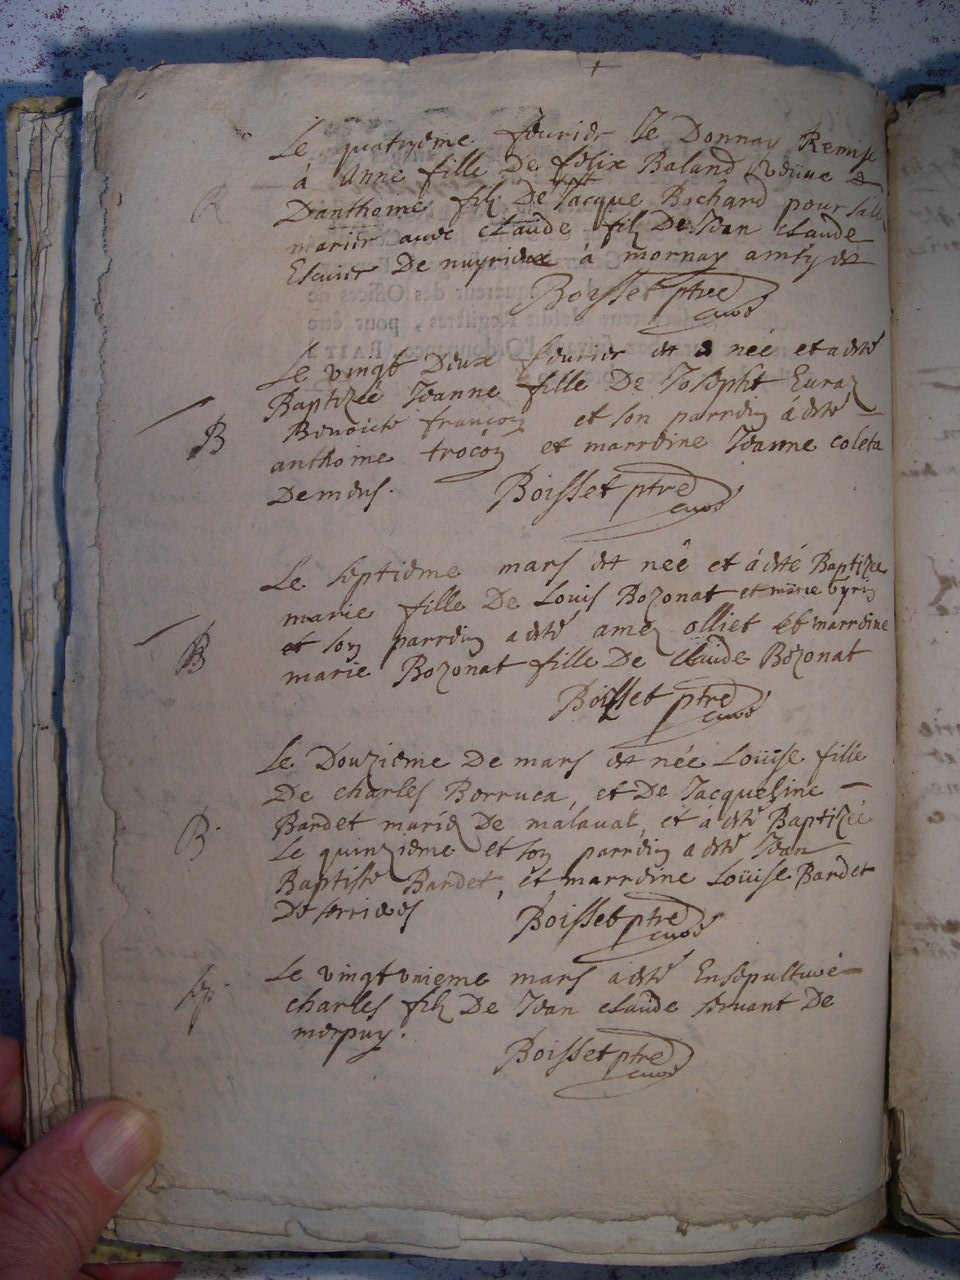 +
Le quatrieme feurier Je Donnay Remise
R à Anne fille De felix Baland veüue
Danthoine filz De Jacque Bochard pour
marier avec claude filz De Jean claude
De nuyrieux à mornay
Boisset ptre
curé
Le vingt Deux feurier est née et a esté
Baptizée Jeanne fille De Joseph
B Benoiste françois et son parrein à esté
anthoine trocon et marreine Jeanne coleta
Demens. Boisset ptre
curé
Le septieme mars est née et à esté Baptizee
marie fille De Louis Bozonat et marie
B et son parrein a esté amez olliet et marreine
marie Bozonat fille De claude Bozonat
Boisset ptre
curé
Le Douzieme De mars est née Loüise fille
De charles Borruca, et De Jacqueline
B. Bardet mariez De malaval, et à esté Baptizée
Le quinzieme et son parrein a esté Jean
Baptiste Bardet, et marreine Loüise Bardet
De serrieres Boisset ptre
curé
Sep. Le vingt vnieme mars a esté Ensepulturé
charles filz De Jean claude seruant De
merpuy. Boisset ptre
curé